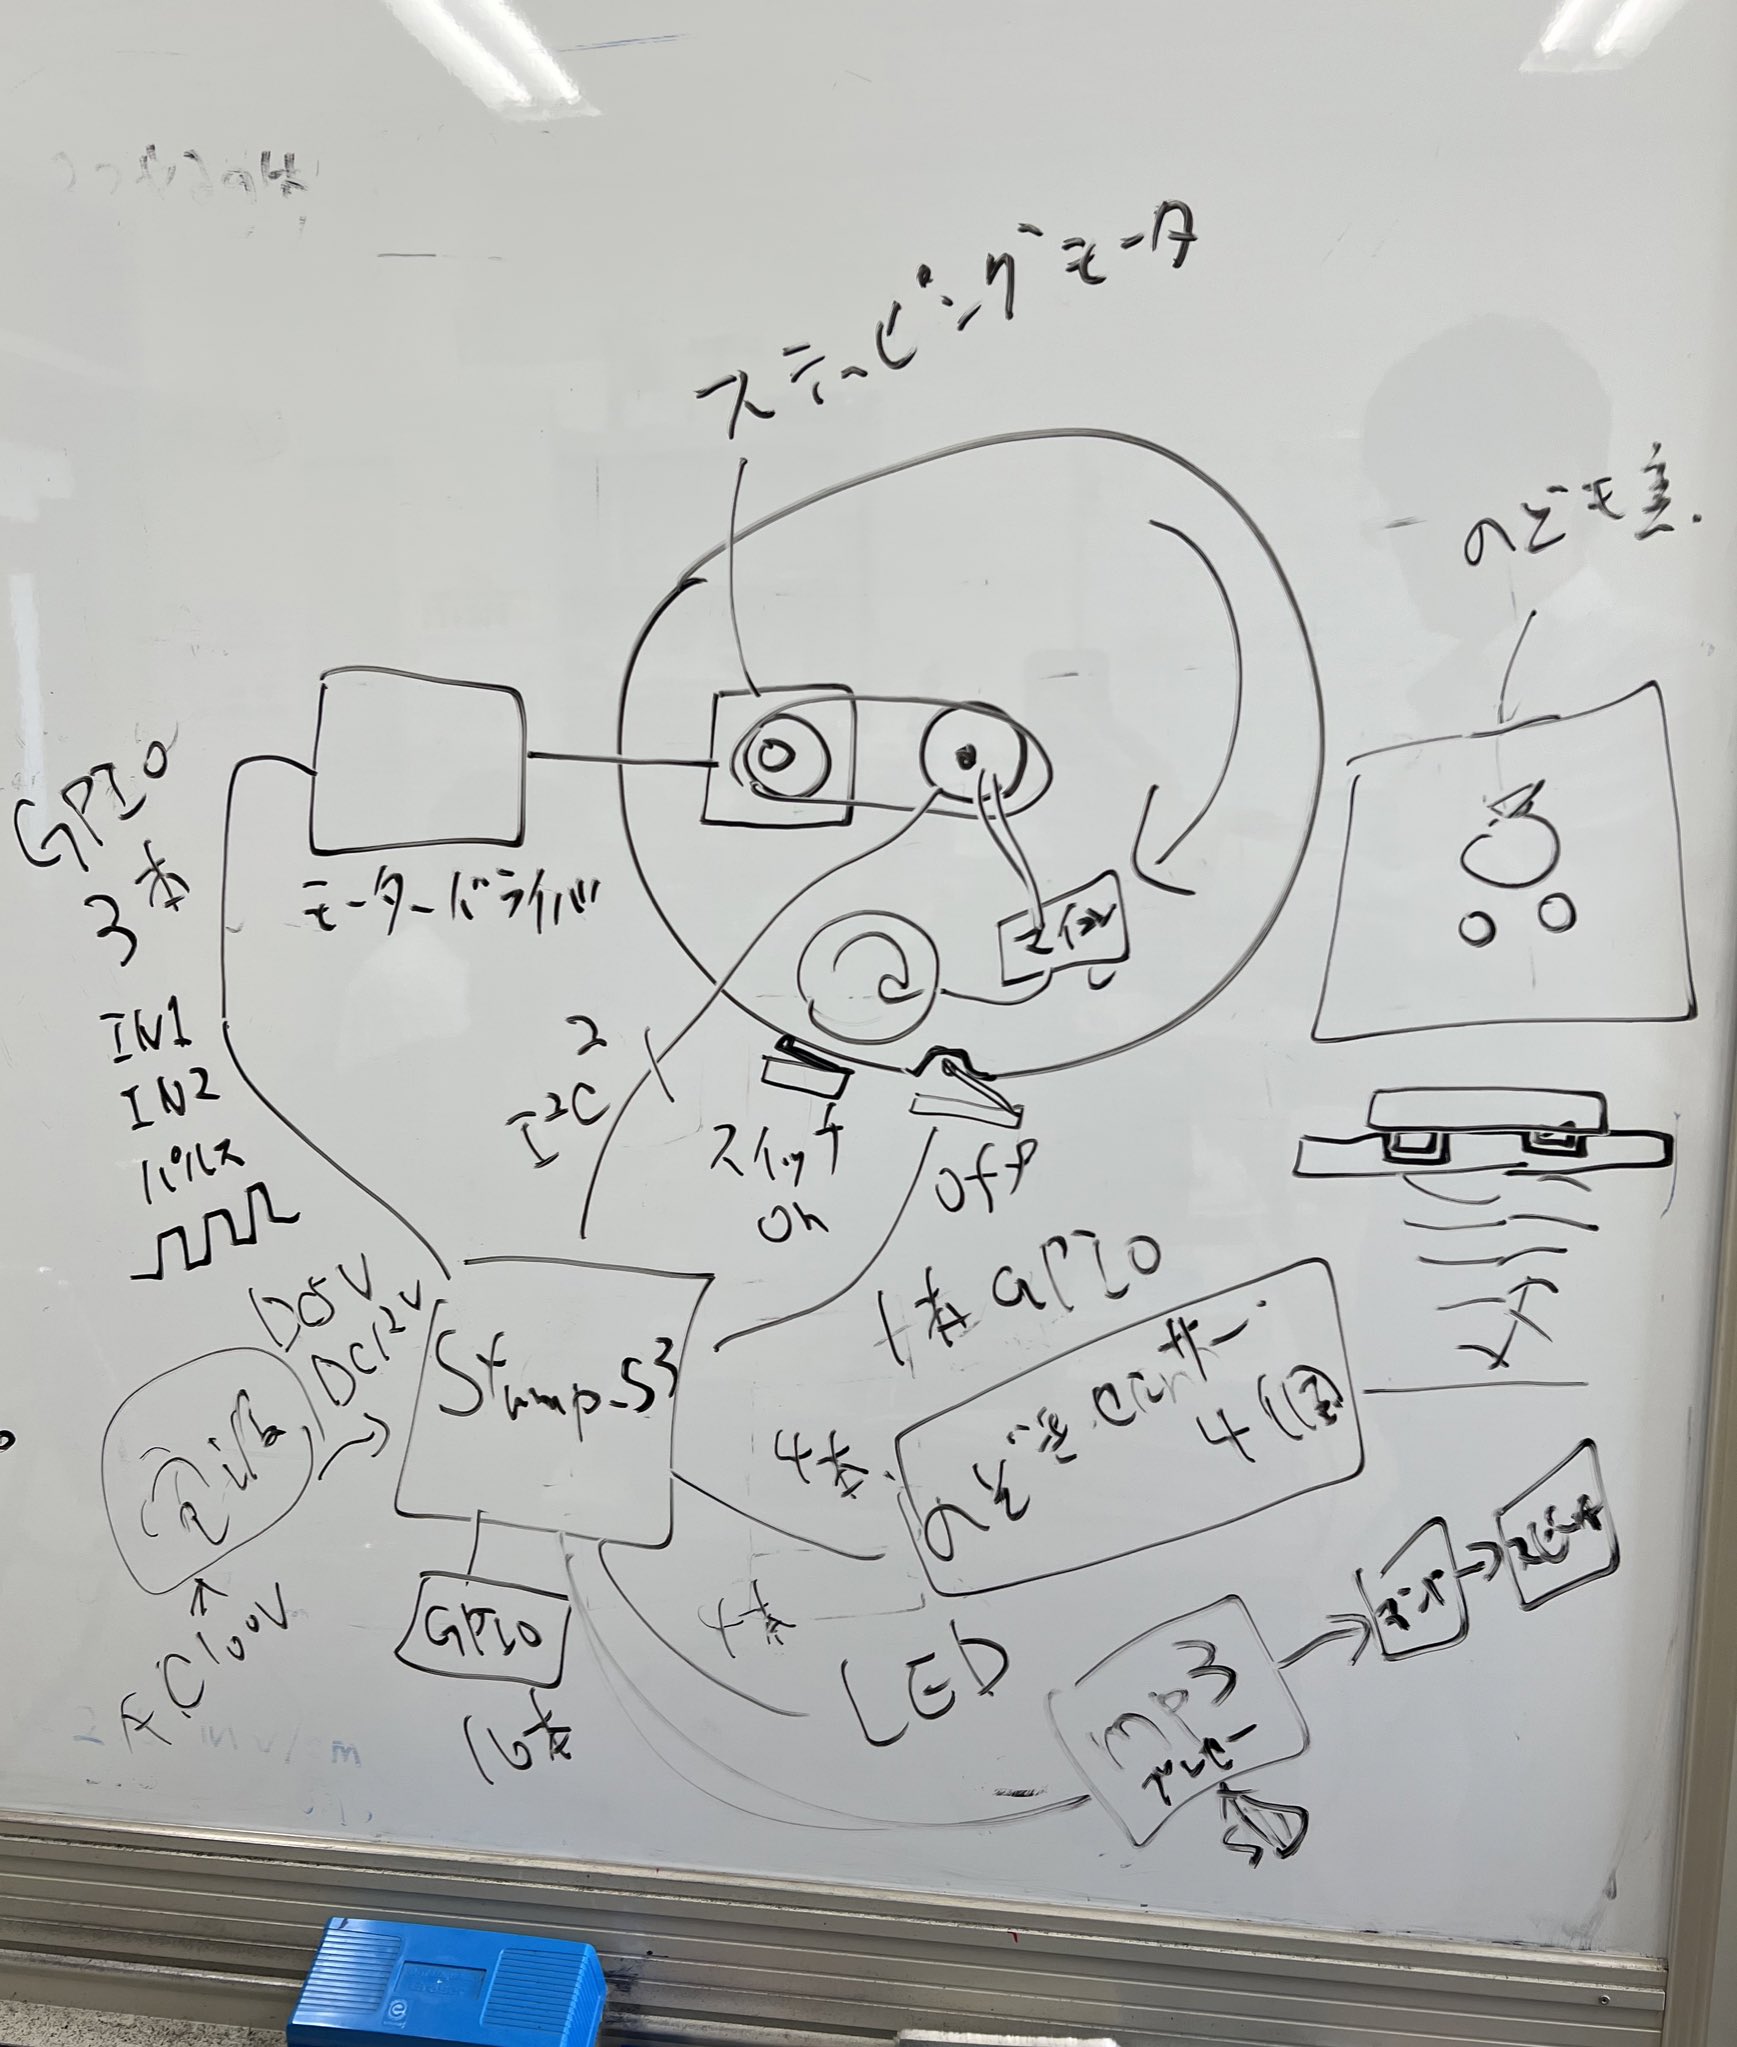 ステッピングモータ
のぞき窓.
GPIO
3本
モータードライバ
IN1
IN2
パルス
マイコン
I²C
2
スイッチ
On
Off
1本 GPIO
DC5V
DC12V
電源
AC100V
Stamp-S3
GPIO
16本
4本
のぞき窓センサー
4個
4本
LED
mp3
プレーヤー
SD
アンプ
スピーカ